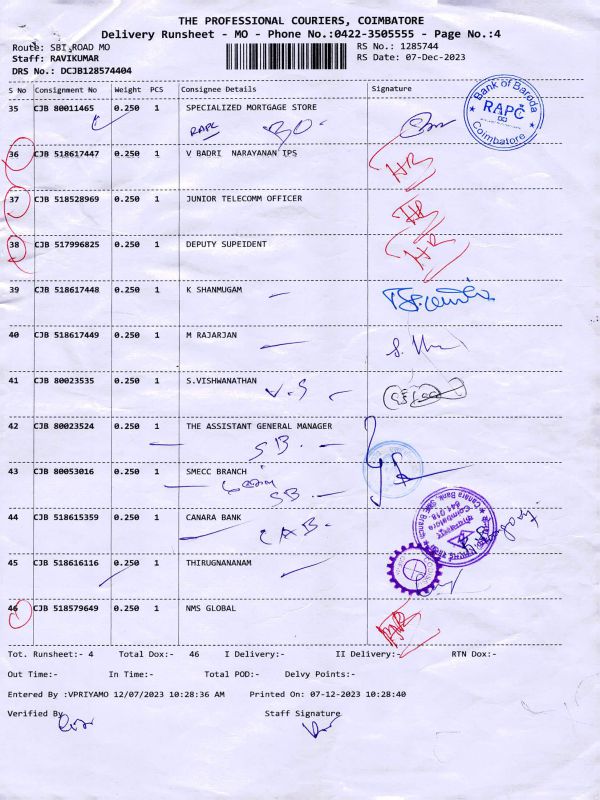 THE PROFESSIONAL COURIERS, COIMBATORE
Delivery Runsheet - MO - Phone No.:0422-3505555 - Page No.:4
Route: SBI ROAD MO
RS No.: 1285744
Staff: RAVIKUMAR
RS Date: 07-Dec-2023
DRS No.: DCJB128574404
S No Consignment No Weight PCS Consignee Details Signature
35 CJB 80011465 0.250 1 SPECIALIZED MORTGAGE STORE
RAPC BO
Bank of Baroda
RAPC
Coimbatore
36 CJB 518617447 0.250 1 V BADRI NARAYANAN IPS
HR
37 CJB 518528969 0.250 1 JUNIOR TELECOMM OFFICER
HR
38 CJB 517996825 0.250 1 DEPUTY SUPEIDENT
HR
39 CJB 518617448 0.250 1 K SHANMUGAM
40 CJB 518617449 0.250 1 M RAJARJAN
41 CJB 80023535 0.250 1 S.VISHWANATHAN
V.S
42 CJB 80023524 0.250 1 THE ASSISTANT GENERAL MANAGER
SB.
43 CJB 80053016 0.250 1 SMECC BRANCH
SB
44 CJB 518615359 0.250 1 CANARA BANK
CAB
Canara Bank, SME Branch
Coimbatore
641 018
45 CJB 518616116 0.250 1 THIRUGNANANAM
46 CJB 518579649 0.250 1 NMS GLOBAL
HR
Tot. Runsheet:- 4 Total Dox:- 46 I Delivery:- II Delivery:- RTN Dox:-
Out Time:- In Time:- Total POD:- Delvy Points:-
Entered By :VPRIYAMO 12/07/2023 10:28:36 AM Printed On: 07-12-2023 10:28:40
Verified By Staff Signature